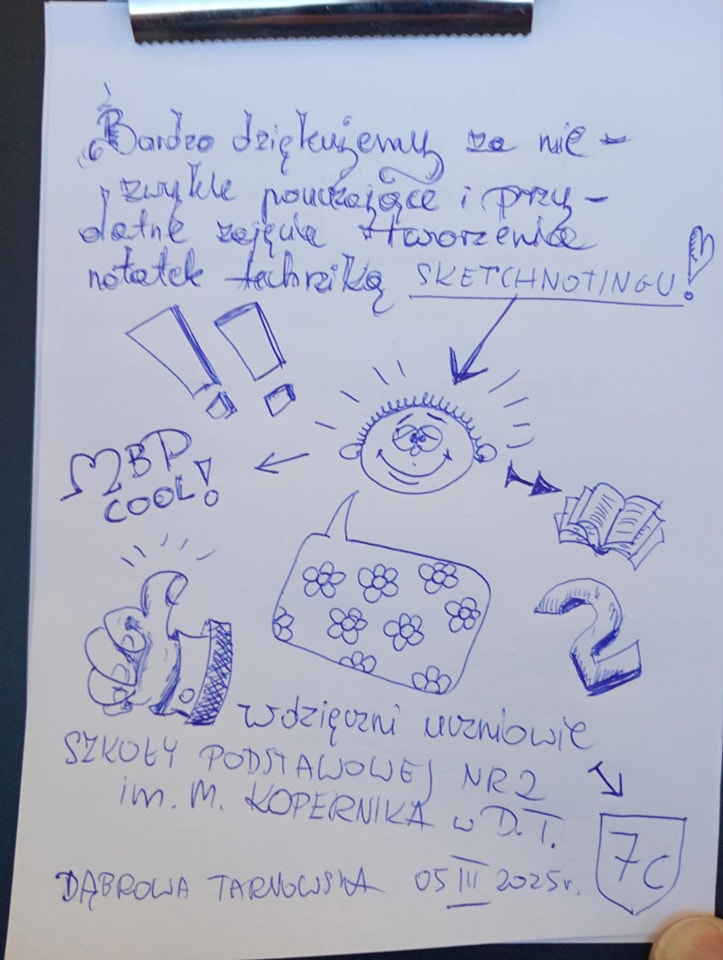 Bardzo dziękujemy za nie-
zwykle pouczające i przy-
datne zajęcia tworzenia
notatek techniką SKETCHNOTINGU!
!!
MBP
COOL!
2
wdzięczni uczniowie
SZKOŁY PODSTAWOWEJ NR 2
im. M. KOPERNIKA w D.T.
7c
DĄBROWA TARNOWSKA 05 III 2025r.